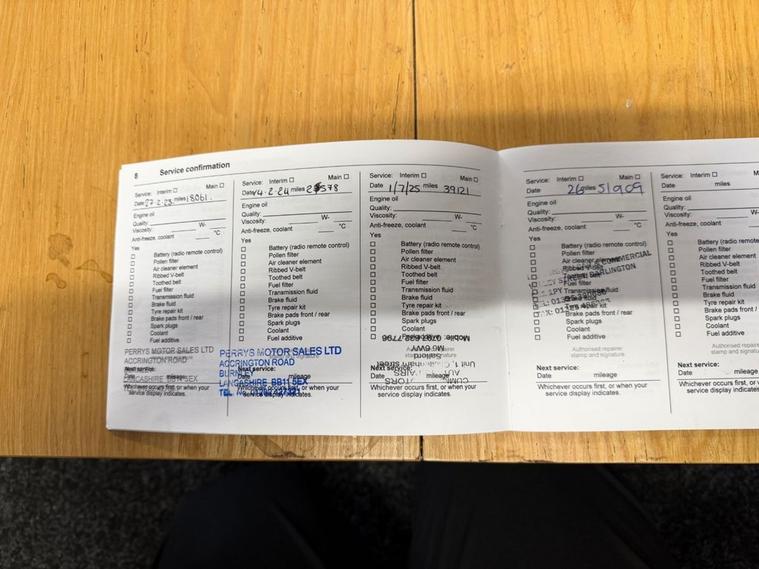 8 Service confirmation
Service: Interim ☐ Main ☐
Date 27.2.23 miles 18061.
Engine oil
Quality: W-
Viscosity: °C
Anti-freeze, coolant
Yes
☐ Battery (radio remote control)
☐ Pollen filter
☐ Air cleaner element
☐ Ribbed V-belt
☐ Toothed belt
☐ Fuel filter
☐ Transmission fluid
☐ Brake fluid
☐ Tyre repair kit
☐ Brake pads front / rear
☐ Spark plugs
☐ Coolant
☐ Fuel additive
PERRYS MOTOR SALES LTD
ACCRINGTON ROAD
LANCASHIRE BB11 5EX
Next service:
Date mileage
Whichever occurs first, or when your
service display indicates.
Service: Interim ☐ Main ☐
Date 14.2.24 miles
Engine oil
Quality: W-
Viscosity: °C
Anti-freeze, coolant
Yes
☐ Battery (radio remote control)
☐ Pollen filter
☐ Air cleaner element
☐ Ribbed V-belt
☐ Toothed belt
☐ Fuel filter
☐ Transmission fluid
☐ Brake fluid
☐ Tyre repair kit
☐ Brake pads front / rear
☐ Spark plugs
☐ Coolant
☐ Fuel additive
PERRYS MOTOR SALES LTD
ACCRINGTON ROAD
BURNLEY
LANCASHIRE BB11 5EX
Next service:
Date mileage
Whichever occurs first, or when your
service display indicates.
Service: Interim ☐ Main ☐
Date 1/7/25 miles 39121
Engine oil
Quality: W-
Viscosity: °C
Anti-freeze, coolant
Yes
☐ Battery (radio remote control)
☐ Pollen filter
☐ Air cleaner element
☐ Ribbed V-belt
☐ Toothed belt
☐ Fuel filter
☐ Transmission fluid
☐ Brake fluid
☐ Tyre repair kit
☐ Brake pads front / rear
☐ Spark plugs
☐ Coolant
☐ Fuel additive
Salford
M6 6WY
Next service:
Date mileage
Whichever occurs first, or when your
service display indicates.
Service: Interim ☐ Main ☐
Date 26 miles 51909
Engine oil
Quality: W-
Viscosity: °C
Anti-freeze, coolant
Yes
☐ Battery (radio remote control)
☐ Pollen filter
☐ Air cleaner element
☐ Ribbed V-belt
☐ Toothed belt
☐ Fuel filter
☐ Transmission fluid
☐ Brake fluid
☐ Tyre repair kit
☐ Brake pads front / rear
☐ Spark plugs
☐ Coolant
☐ Fuel additive
COMMERCIAL
DARLINGTON
Authorised repairer
stamp and signature
Next service:
Date mileage
Whichever occurs first, or when your
service display indicates.
Service: Interim ☐ Main
Date miles
Engine oil
Quality:
Viscosity:
Anti-freeze, coolant
Yes
☐ Battery (radio remote
☐ Pollen filter
☐ Air cleaner element
☐ Ribbed V-belt
☐ Toothed belt
☐ Fuel filter
☐ Transmission fluid
☐ Brake fluid
☐ Tyre repair kit
☐ Brake pads front / re
☐ Spark plugs
☐ Coolant
☐ Fuel additive
Authorised repaire
stamp and signatur
Next service:
Date mileage
Whichever occurs first, or w
service display indicates.